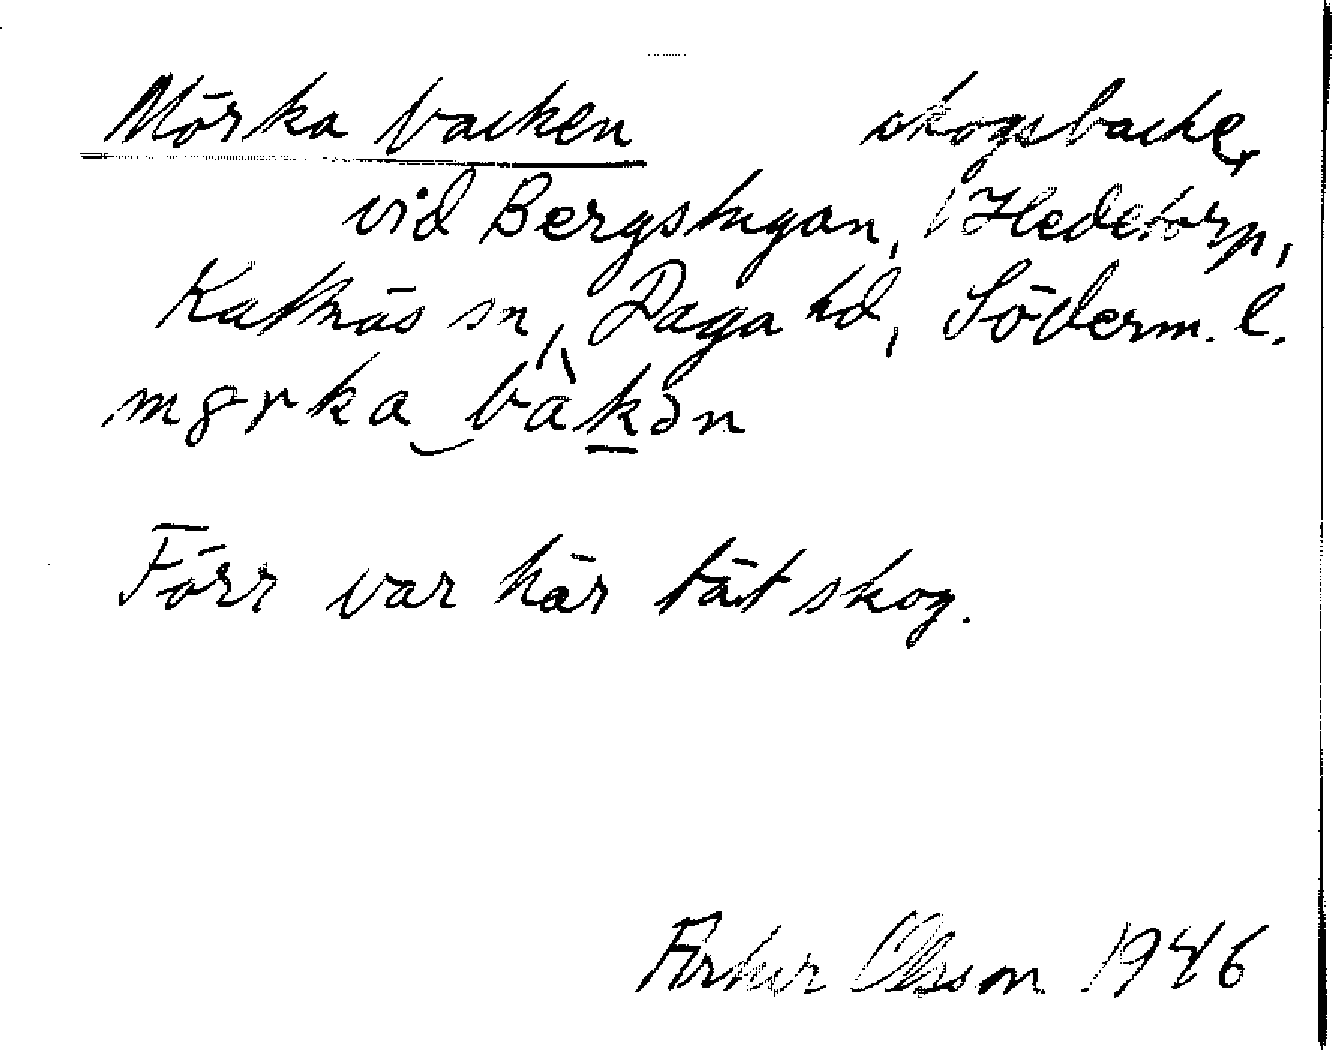 Mörka backen skogsbacke,
vid Bergstugan, Hedetorp,
Kattnäs sn, Daga hd, Söderm. l.
mɞrka‿bàk̲ən
Förr var här tät skog.
Olsson 1946